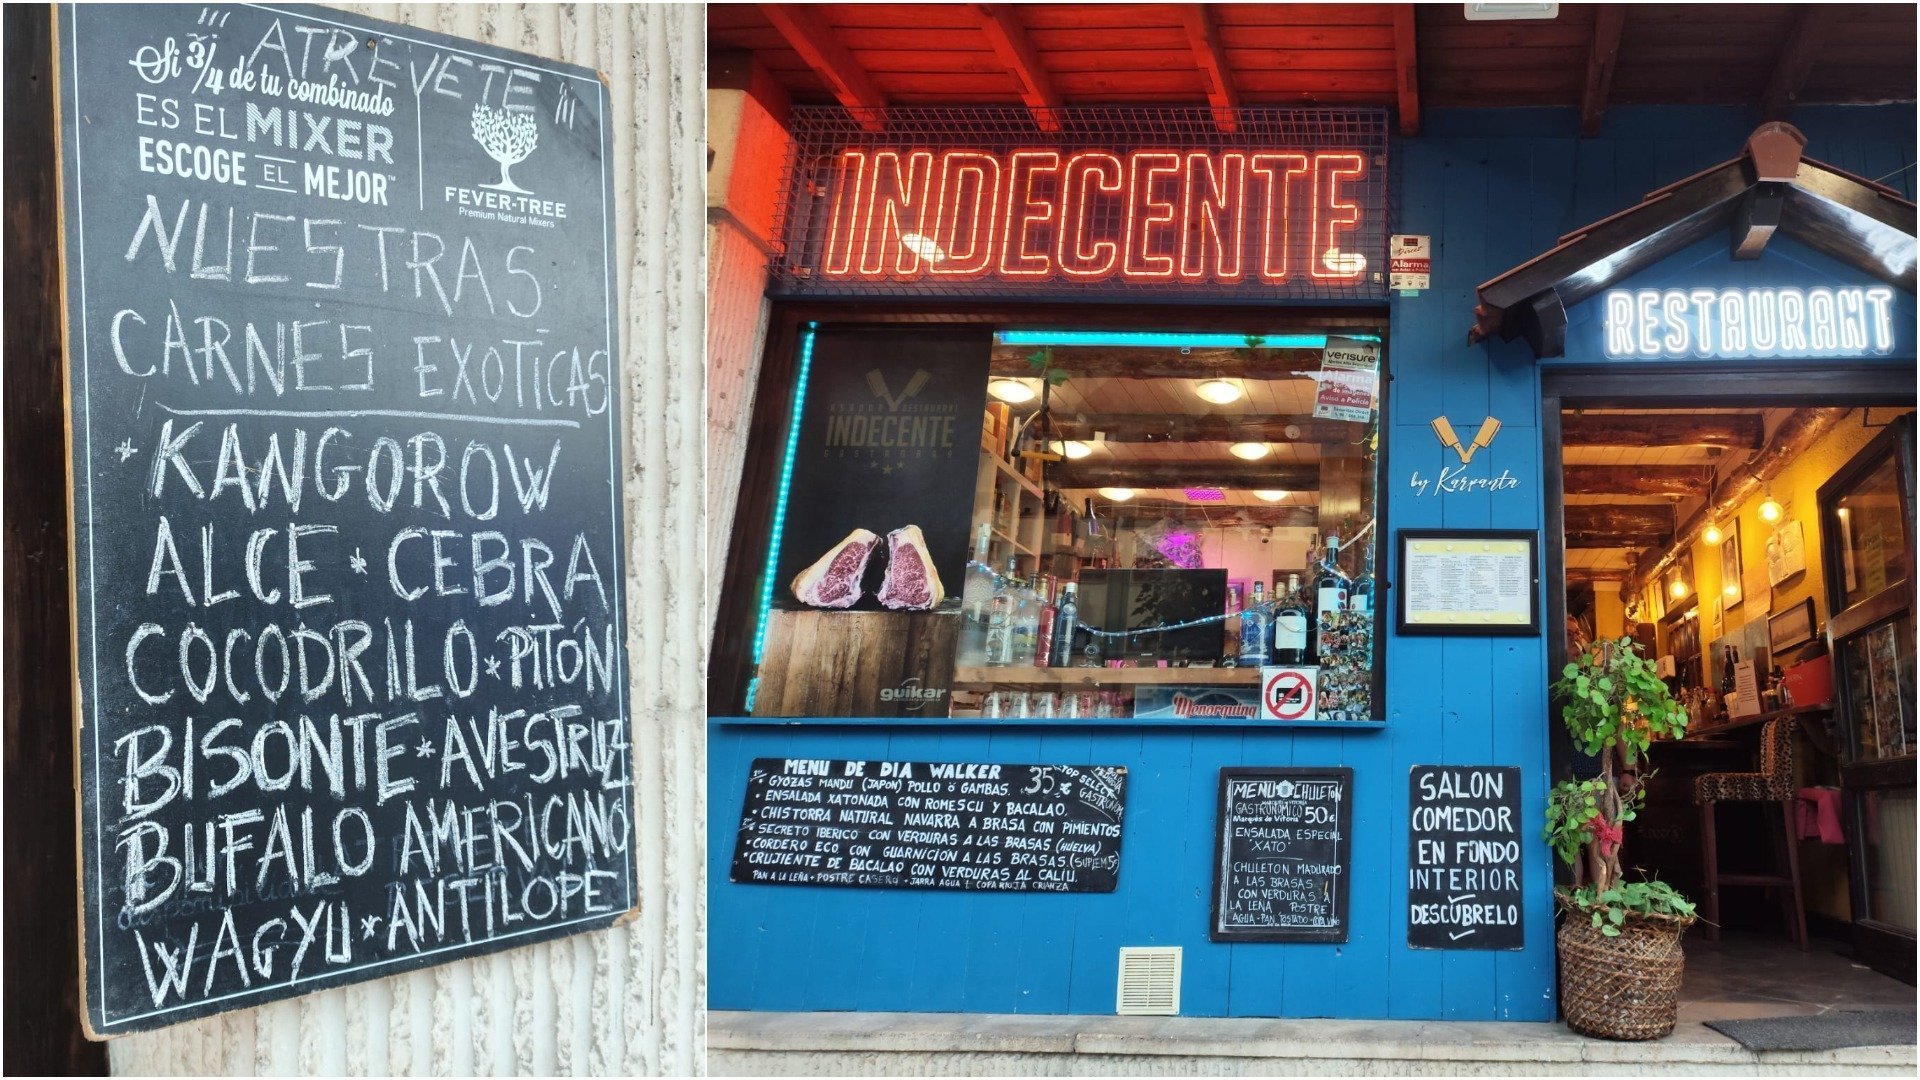 ¡¡¡ ATREVETE !!!
Si 3/4 de tu combinado
ES EL MIXER
ESCOGE EL MEJOR™
FEVER-TREE
Premium Natural Mixers
NUESTRAS
CARNES EXOTICAS
* KANGOROW
ALCE * CEBRA
COCODRILO * PITÓN
BISONTE * AVESTRUZ
BUFALO AMERICANO
WAGYU * ANTILOPE
INDECENTE
RESTAURANT
Alarma
verisure
Alarma
Aviso a Policía
RESTAURANT
INDECENTE
GASTROBAR
by Karpanta
guikar
Menorquina
MENU DE DIA WALKER 35 €
TOP SELECC
GASTRONOM
* GYOZAS MANDU (JAPON) POLLO o GAMBAS.
* ENSALADA XATONADA CON ROMESCU Y BACALAO.
* CHISTORRA NATURAL NAVARRA A BRASA CON PIMIENTOS
* SECRETO IBERICO CON VERDURAS A LAS BRASAS (HUELVA)
* CORDERO ECO CON GUARNICION A LAS BRASAS. (SUPLEM 5€)
* CRUJIENTE DE BACALAO CON VERDURAS AL CALIU.
PAN A LA LEÑA + POSTRE CASERO + JARRA AGUA ó COPA RIOJA CRIANZA
MENU CHULETON
GASTRONOMICO 50€
Marqués de Vitoria
ENSALADA ESPECIAL
"XATO"
CHULETON MADURADO
A LAS BRASAS
CON VERDURAS A
LA LEÑA POSTRE
AGUA - PAN TOSTADO -
SALON
COMEDOR
EN FONDO
INTERIOR
DESCÚBRELO